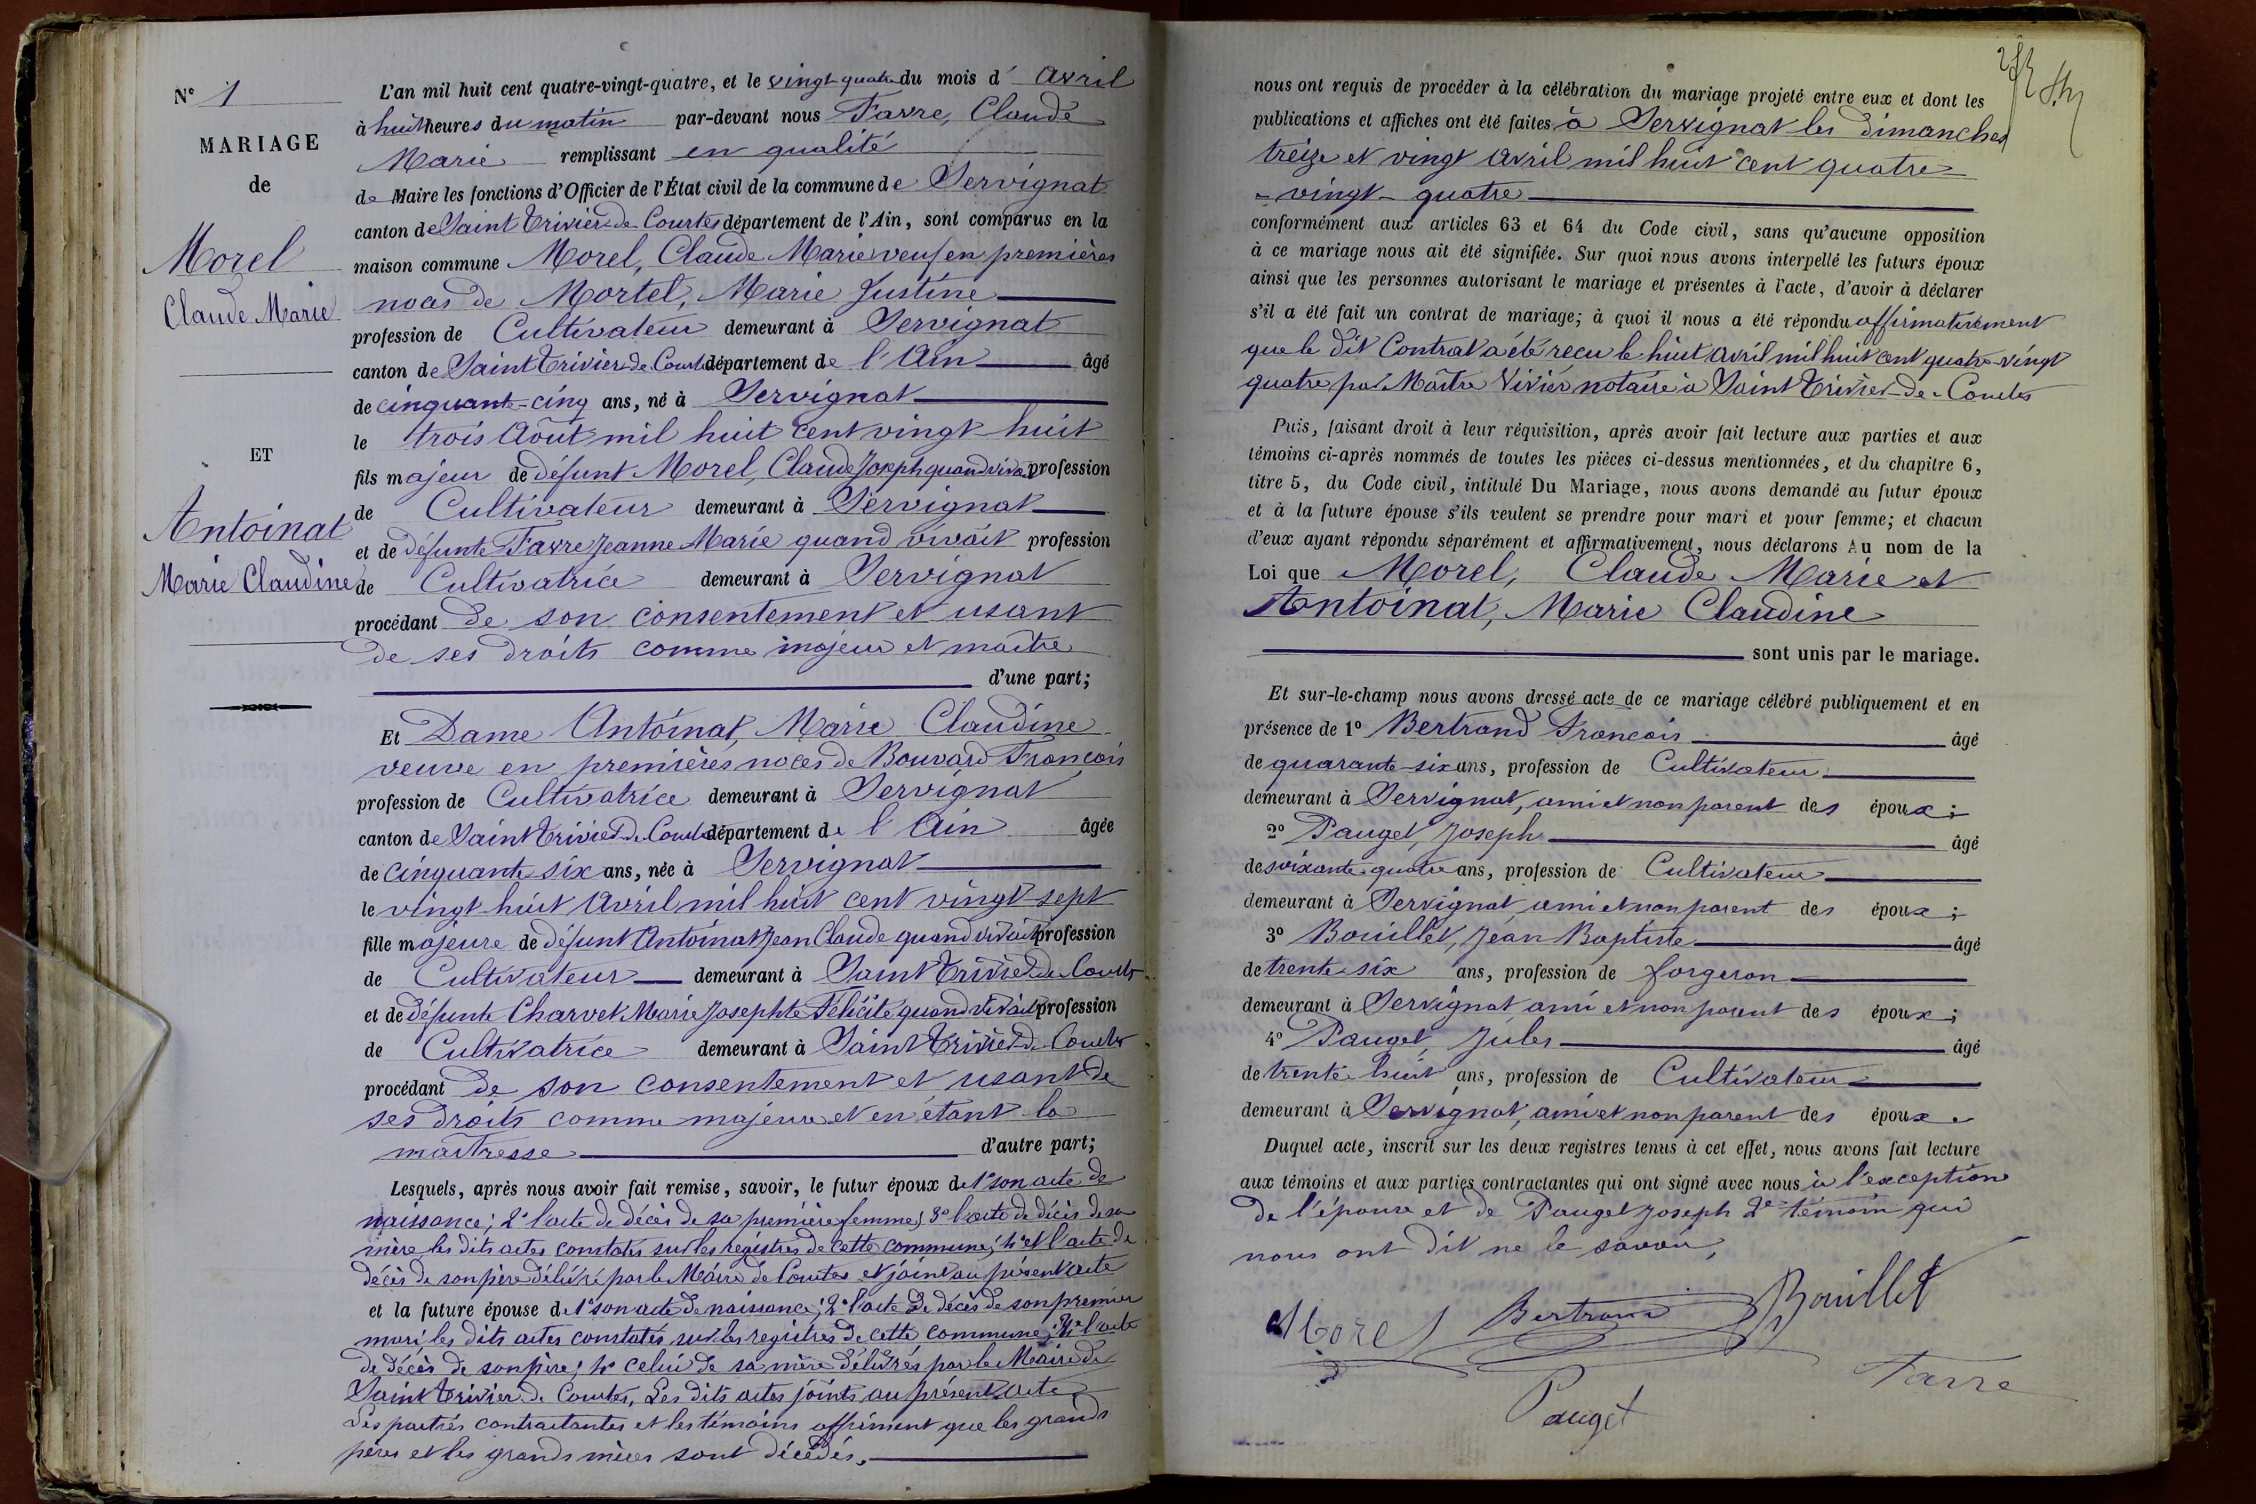 N° 1
MARIAGE
de
Morel
Claude Marie
ET
Antoinat
Marie Claudine
L'an mil huit cent quatre-vingt-quatre, et le vingt-quatre du mois d' Avril
à huit heures du matin par-devant nous Favre, Claude
Marie remplissant en qualité
de Maire les fonctions d'Officier de l'État civil de la commune de Servignat
canton de Saint Trivier-de-Courtes département de l'Ain, sont comparus en la
maison commune Morel, Claude Marie veuf en premières
noces de Mortel, Marie Justine
profession de Cultivateur demeurant à Servignat
canton de Saint Trivier-de-Courtes département de l'Ain âgé
de cinquante-cinq ans, né à Servignat
le trois Août mil huit cent vingt-huit
fils majeur de défunt Morel, Claude Joseph quand vivait profession
de Cultivateur demeurant à Servignat
et de défunte Favre Jeanne Marie quand vivait profession
de Cultivatrice demeurant à Servignat
procédant de son consentement et usant
de ses droits comme majeur et maître
d'une part;
Et Dame Antoinat, Marie Claudine
veuve en premières noces de Bouvard François
profession de Cultivatrice demeurant à Servignat
canton de Saint Trivier-de-Courtes département de l'Ain âgée
de cinquante-six ans, née à Servignat
le vingt-huit Avril mil huit cent vingt-sept
fille majeure de défunt Antoinat Jean Claude quand vivait profession
de Cultivateur demeurant à Saint Trivier-de-Courtes
et de défunte Charvet Marie Josephte Félicité quand vivait profession
de Cultivatrice demeurant à Saint Trivier-de-Courtes
procédant de son consentement et usant de
ses droits comme majeure et en étant la
maîtresse d'autre part;
Lesquels, après nous avoir fait remise, savoir, le futur époux de 1° son acte de
naissance; 2° l'acte de décès de sa première femme; 3° l'acte de décès de sa
mère les dits actes constatés sur les registres de cette commune; 4° et l'acte de
décès de son père délivré par le Maire de Courtes et joint au présent acte
et la future épouse de 1° son acte de naissance; 2° l'acte de décès de son premier
mari, les dits actes constatés sur les registres de cette commune; 3° l'acte
de décès de son père; 4° celui de sa mère délivrés par le Maire de
Saint Trivier-de-Courtes, Les dits actes joints au présent acte
Les parties contractantes et les témoins affirment que les grands
pères et les grands mères sont décédés.
nous ont requis de procéder à la célébration du mariage projeté entre eux et dont les
publications et affiches ont été faites à Servignat les dimanches
treize et vingt Avril mil huit cent quatre
-vingt-quatre
conformément aux articles 63 et 64 du Code civil, sans qu'aucune opposition
à ce mariage nous ait été signifiée. Sur quoi nous avons interpellé les futurs époux
ainsi que les personnes autorisant le mariage et présentes à l'acte, d'avoir à déclarer
s'il a été fait un contrat de mariage; à quoi il nous a été répondu affirmativement
que le dit Contrat a été reçu le huit Avril mil huit cent quatre-vingt
quatre par Maître Vivier notaire à Saint Trivier-de-Courtes
Puis, faisant droit à leur réquisition, après avoir fait lecture aux parties et aux
témoins ci-après nommés de toutes les pièces ci-dessus mentionnées, et du chapitre 6,
titre 5, du Code civil, intitulé Du Mariage, nous avons demandé au futur époux
et à la future épouse s'ils veulent se prendre pour mari et pour femme; et chacun
d'eux ayant répondu séparément et affirmativement, nous déclarons Au nom de la
Loi que Morel, Claude Marie et
Antoinat, Marie Claudine
sont unis par le mariage.
Et sur-le-champ nous avons dressé acte de ce mariage célébré publiquement et en
présence de 1° Bertrand François âgé
de quarante-six ans, profession de Cultivateur
demeurant à Servignat, ami et non parent des époux;
2° Pauget, Joseph âgé
de soixante-quatre ans, profession de Cultivateur
demeurant à Servignat ami et non parent des époux;
3° Bouillet, Jean Baptiste âgé
de trente-six ans, profession de forgeron
demeurant à Servignat ami et non parent des époux;
4° Pauget, Jules âgé
de trente-huit ans, profession de Cultivateur
demeurant à Servignat, ami et non parent des époux.
Duquel acte, inscrit sur les deux registres tenus à cet effet, nous avons fait lecture
aux témoins et aux parties contractantes qui ont signé avec nous à l'exception
de l'épouse et de Pauget Joseph 2e témoin qui
nous ont dit ne le savoir,
Morel Bertrand Bouillet
Pauget Favre